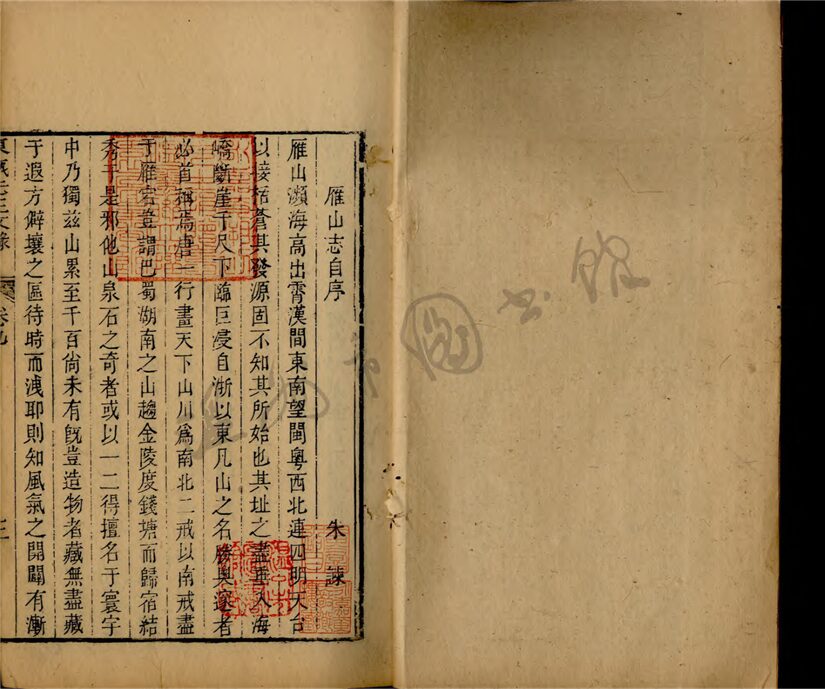 雁山志自序
朱諫
雁山瀕海高出霄漢間東南望閩粤西北連四明天台
以接栝蒼其發源固不知其所始也其址之盡垂入海
嶠斷崖千尺下臨巨浸自浙以東凡山之名勝奥邃者
必首稱焉唐一行畫天下山川爲南北二戒以南戒盡
于雁宕豈謂巴蜀湖南之山趨金陵度錢塘而歸宿結
秀于是邪他山泉石之奇者或以一二得擅名于寰宇
中乃獨茲山累至千百尚未有旣豈造物者藏無盡藏
于遐方僻壤之區待時而洩耶則知風氣之開闢有漸
卷九
三
圖書館